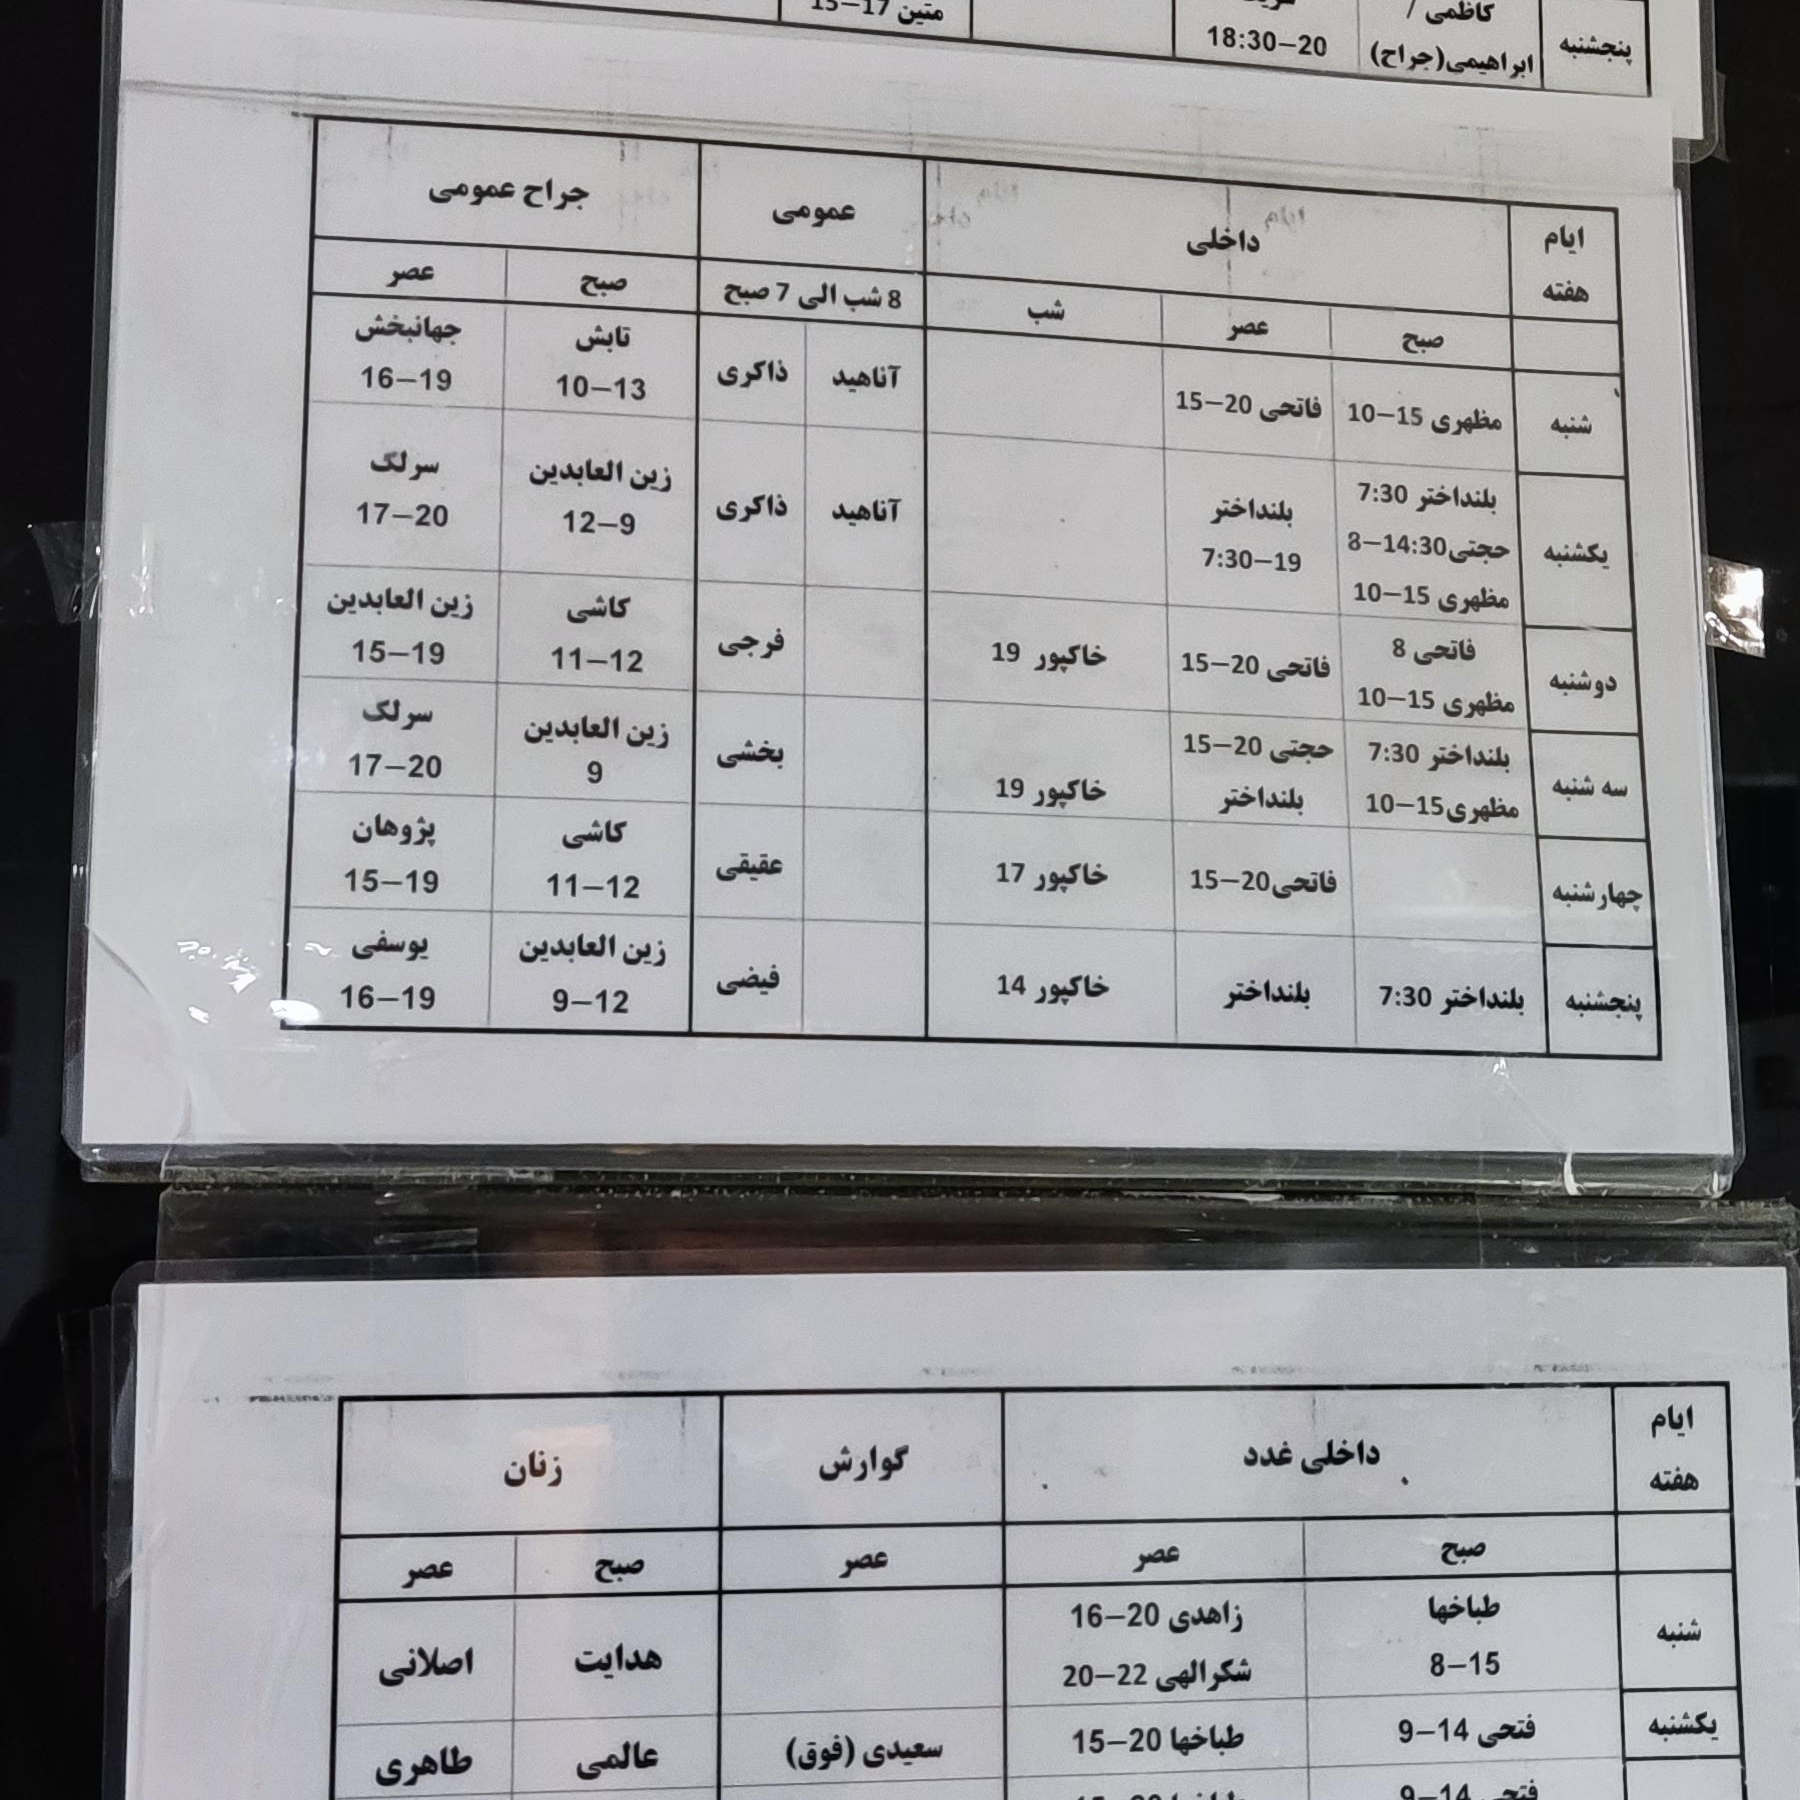 پنجشنبه
کاظمی /
ابراهیمی(جراح)
18:30–20
متین 17–15
ایام
هفته
داخلی
عمومی
جراح عمومی
صبح
عصر
شب
8 شب الی 7 صبح
صبح
عصر
شنبه
مظهری 15–10
فاتحی 20–15
آناهید
ذاکری
تابش
10–13
جهانبخش
16–19
یکشنبه
بلنداختر 7:30
حجتی14:30–8
مظهری 15–10
بلنداختر
7:30–19
آناهید
ذاکری
زین العابدین
12–9
سرلک
17–20
دوشنبه
فاتحی 8
مظهری 15–10
فاتحی 20–15
خاکپور 19
فرجی
کاشی
11–12
زین العابدین
15–19
سه شنبه
بلنداختر 7:30
مظهری15–10
حجتی 20–15
بلنداختر
خاکپور 19
بخشی
زین العابدین
9
سرلک
17–20
چهارشنبه
فاتحی20–15
خاکپور 17
عقیقی
کاشی
11–12
پژوهان
15–19
پنجشنبه
بلنداختر 7:30
بلنداختر
خاکپور 14
فیضی
زین العابدین
9–12
یوسفی
16–19
ایام
هفته
داخلی غدد
گوارش
زنان
صبح
عصر
عصر
صبح
عصر
شنبه
طباخها
8–15
زاهدی 20–16
شکرالهی 22–20
هدایت
اصلانی
یکشنبه
فتحی 14–9
طباخها 20–15
سعیدی (فوق)
عالمی
طاهری
فتحی 14–9
طباخها 20–15